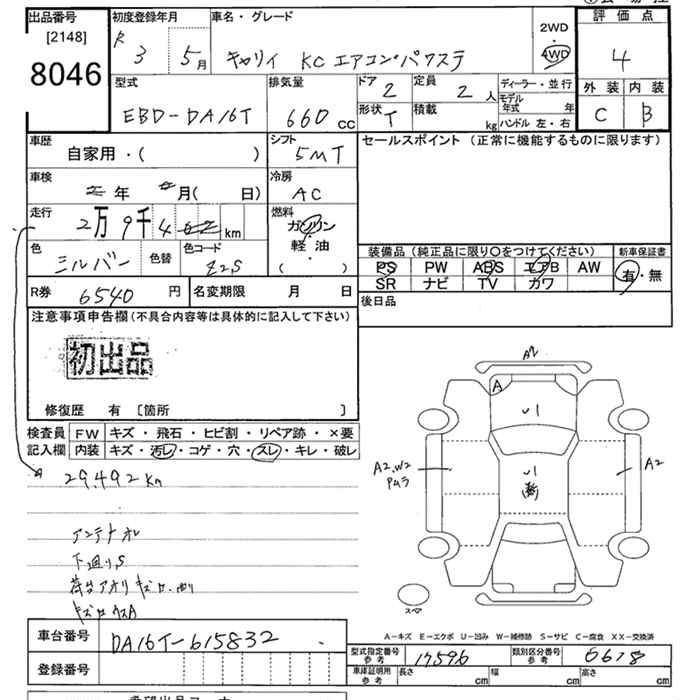 出品番号 初度登録年月 車名・グレード 2WD・4WD 評価点
[2148]
8046
R 3 5月 キャリイ KC エアコン・パワステ 4
型式 排気量 ドア 2 定員 2人 ディーラー・並行 外装 内装
EBD-DA16T 660cc 形状 T 積載 kg モデル年式 年 C B
ハンドル 左・右
車歴 シフト セールスポイント (正常に機能するものに限ります)
自家用・( ) 5MT
車検 冷房
年 月( 日) AC
走行 燃料
2万9千4 km ガソリン・軽油 ( )
色 色替 色コード 装備品 (純正品に限り〇をつけてください) 新車保証書
シルバー Z2S PS PW ABS エアB AW 有・無
SR ナビ TV カワ
R券 6540円 名変期限 月 日 後日品
注意事項申告欄(不具合内容等は具体的に記入して下さい)
初出品
修復歴 有 [箇所 ]
検査員 FW キズ・飛石・ヒビ割・リペア跡・×要
記入欄 内装 キズ・汚レ・コゲ・穴・スレ・キレ・破レ
29,492km
アンテナオレ
下廻りS
荷台アオリ キズ
A2
A
A2.W2
A2
スペア
A-キズ E-エクボ U-凹み W-補修跡 S-サビ C-腐食 XX-交換済
車台番号 DA16T-615832
型式指定番号 参考 17596 類別区分番号 参考 6618
登録番号
車庫証明用 参考 長さ cm 幅 cm 高さ cm